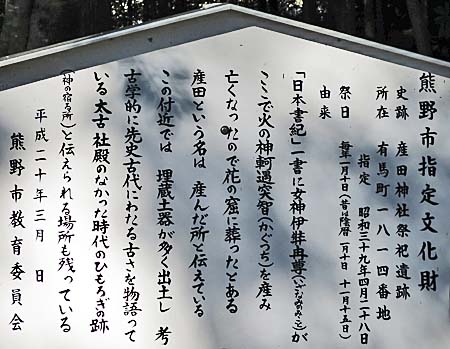 熊野市指定文化財
史跡 産田神社祭祀遺跡
所在 有馬町一八一四番地
指定 昭和三十九年四月二十八日
祭日 毎年一月十日(昔は旧暦一月十日 十一月十五日)
由来
「日本書紀」一書に女神伊弉冉尊(いざなみのみこと)が
ここで火の神軻遇突智(かぐつち)を産み
亡くなったので花の窟に葬ったとある
産田という名は 産んだ所と伝えている
この付近では 埋蔵土器が多く出土し 考
古学的に先史古代にわたる古さを物語って
いる 太古社殿のなかった時代のひもろぎの跡
(神の宿る所)と伝えられる場所も残っている
平成二十年三月 日
熊野市教育委員会